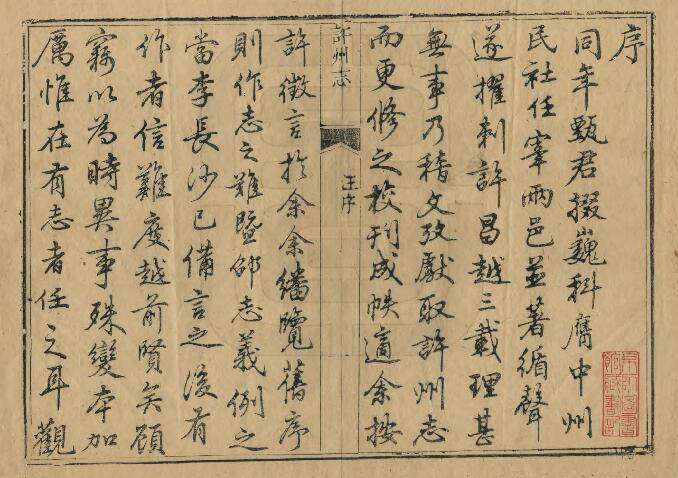 序
同年甄君掇巍科膺中州
民社任宰兩邑並著循聲
遂擢刺許昌越三載理甚
無事乃稽文攷獻取許州志
而更修之校刊成帙適余按
許州志
王序
許徵言於余余繙覽舊序
則作志之難暨邵志義例之
當李長沙已備言之後有
作者信難度越前賢矣顧
竊以為時異事殊變本加
厲惟在有志者任之耳觀